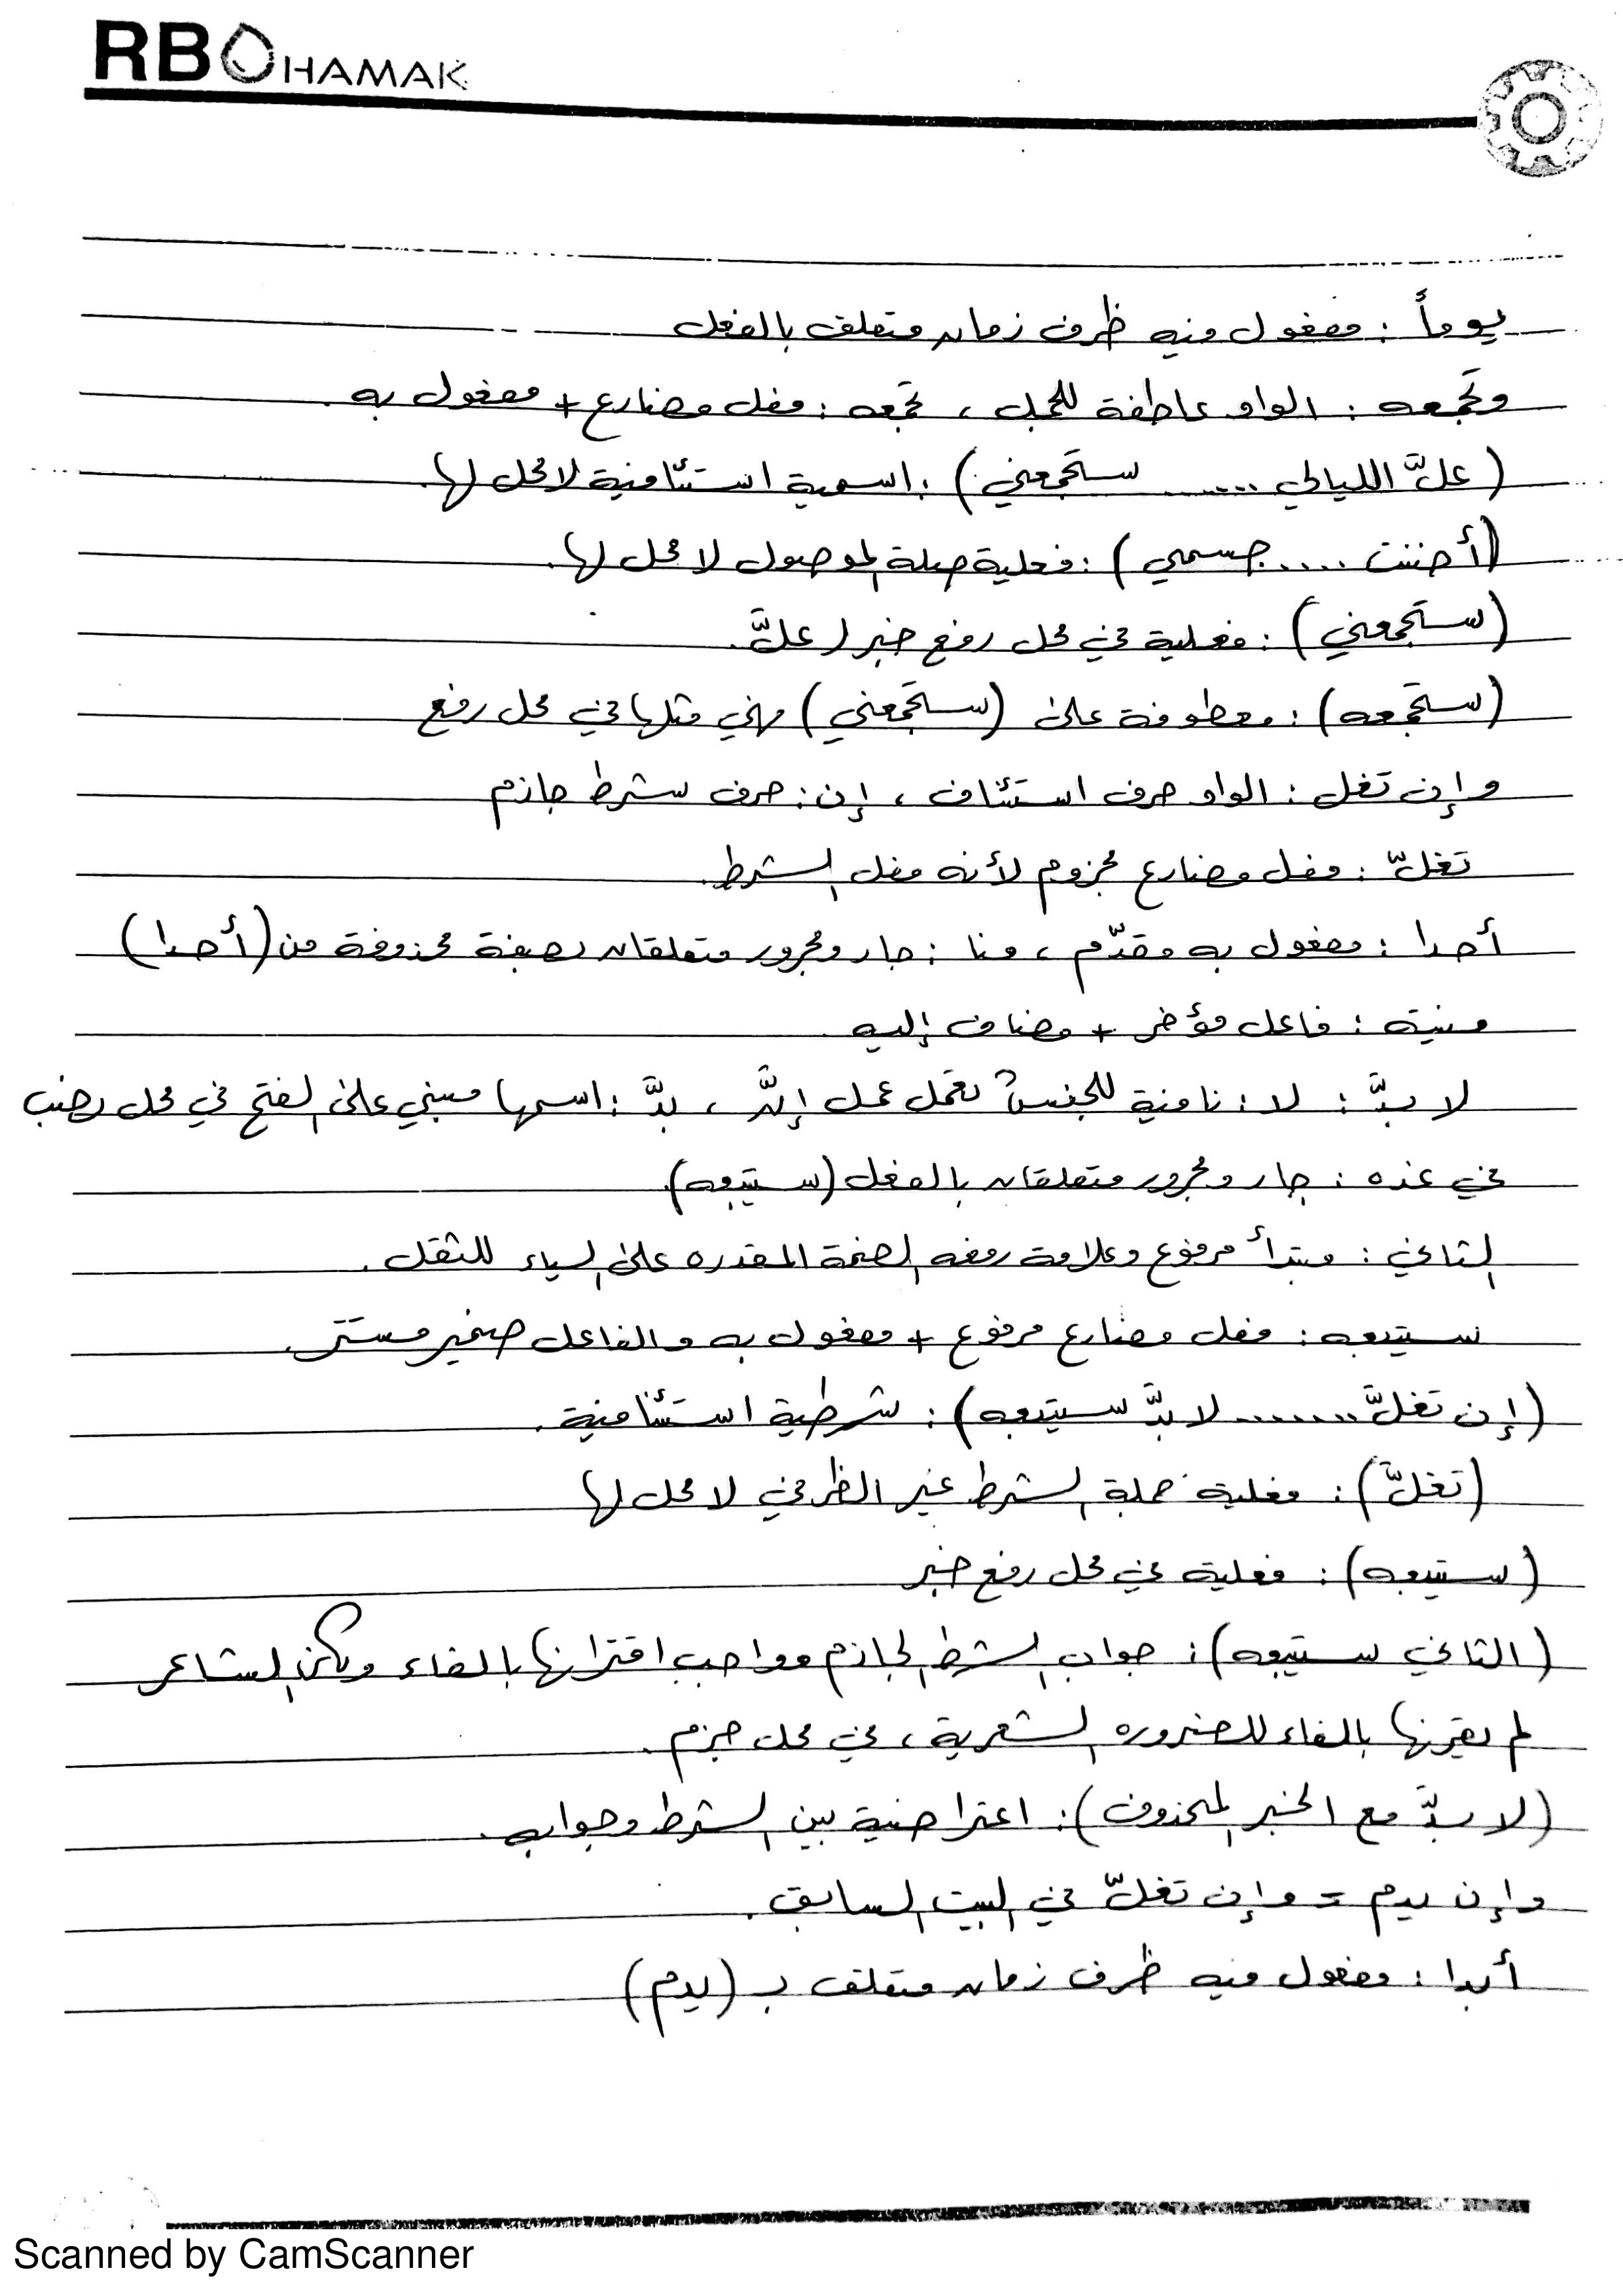 RB HAMAK
يوماً : مفعول فيه ظرف زمان متعلق بالفعل
وتجمعه : الواو عاطفة للجمل ، تجمعه : فعل مضارع + مفعول به .
(علَّ الليالي ...... ستجمعني) : اسمية استئنافية لا محل لها .
(أضنت ..... جسمي) : فعلية صلة الموصول لا محل لها .
(ستجمعني) : فعلية في محل رفع خبر لـ علَّ .
(ستجمعه) : معطوفة على (ستجمعني) فهي مثلها في محل رفع
وإن تغل : الواو حرف استئناف ، إن : حرف شرط جازم
تغلّ : فعل مضارع مجزوم لأنه فعل الشرط .
أحدا : مفعول به مقدّم ، منا : جار ومجرور متعلقان بصفة محذوفة من (أحدا)
منيته : فاعل مؤخر + مضاف إليه
لا بدَّ : لا : نافية للجنس تعمل عمل إنَّ ، بدَّ : اسمها مبني على الفتح في محل نصب
في غده : جار ومجرور متعلقان بالفعل (ستتبعه)
الثاني : مبتدأ مرفوع وعلامة رفعه الضمة المقدره على الياء للثقل .
ستتبعه : فعل مضارع مرفوع + مفعول به والفاعل ضمير مستتر .
(إن تغلَّ ....... لا بدَّ سيتبعه) : شرطية استئنافية .
(تغلَّ) : فعلية جملة الشرط غير الظرفي لا محل لها
(ستتبعه) : فعلية في محل رفع خبر
(الثاني ستتبعه) : جواب الشرط الجازم وواجب اقترانها بالفاء ولكن الشاعر
لم يقرنها بالفاء للضروره الشعرية ، في محل جزم .
(لا بدَّ مع الخبر المحذوف) : اعتراضية بين الشرط وجوابه .
وإن يدم = وإن تغلّ في البيت السابق .
أبدا : مفعول فيه ظرف زمان متعلق بـ (يدم)
Scanned by CamScanner